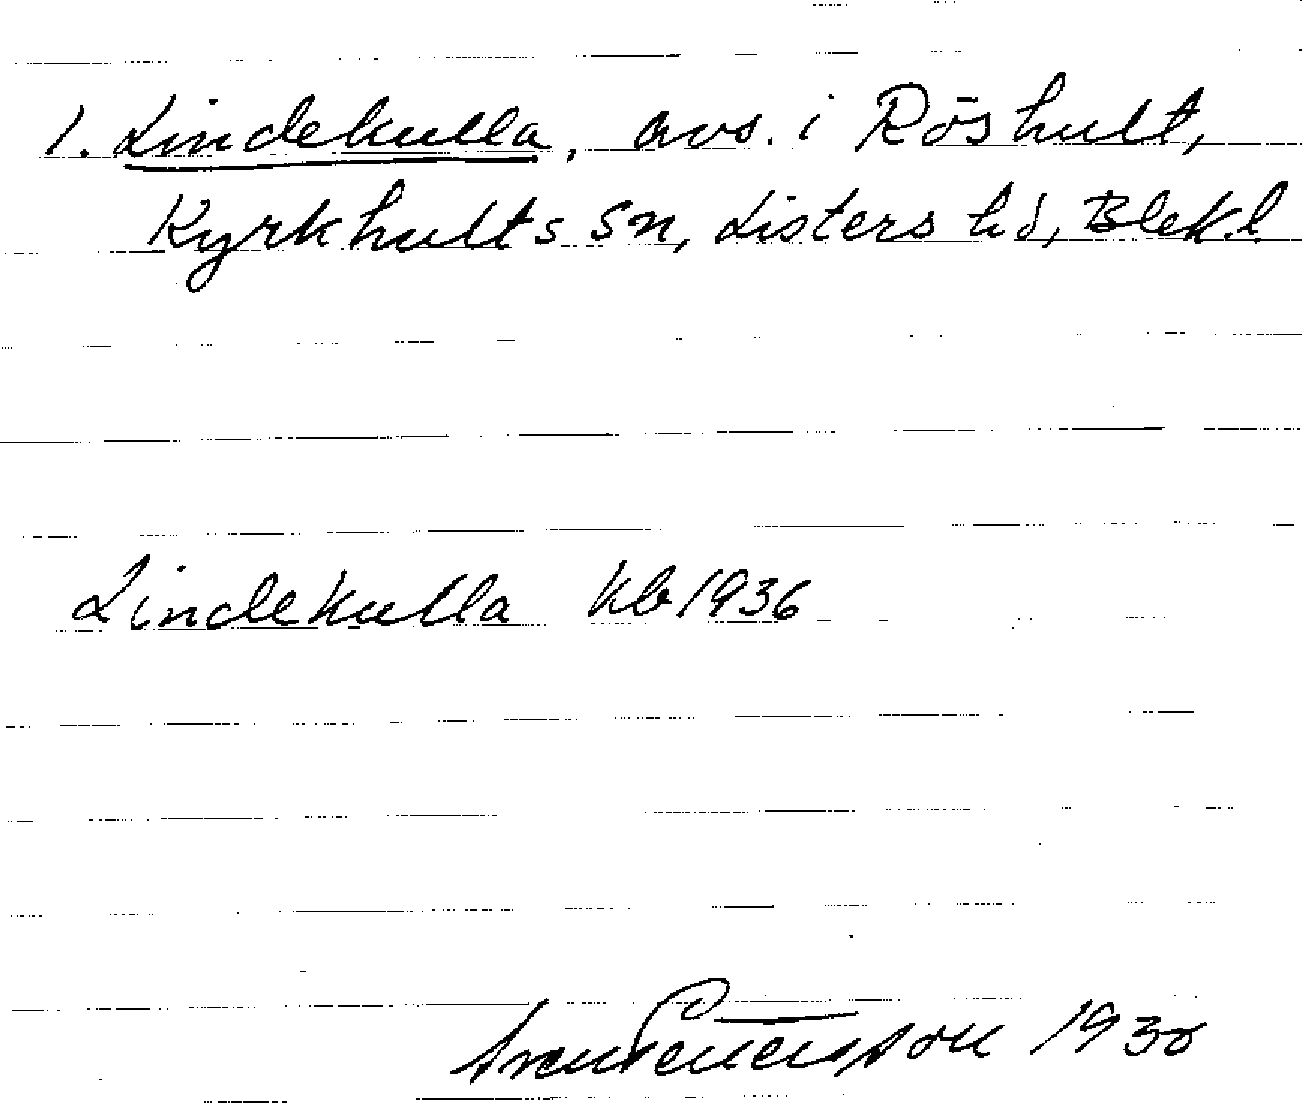 1. Lindekulla, avs. i Röshult,
Kyrkhults sn, Listers hd, Blek.l.
Lindekulla kb 1936